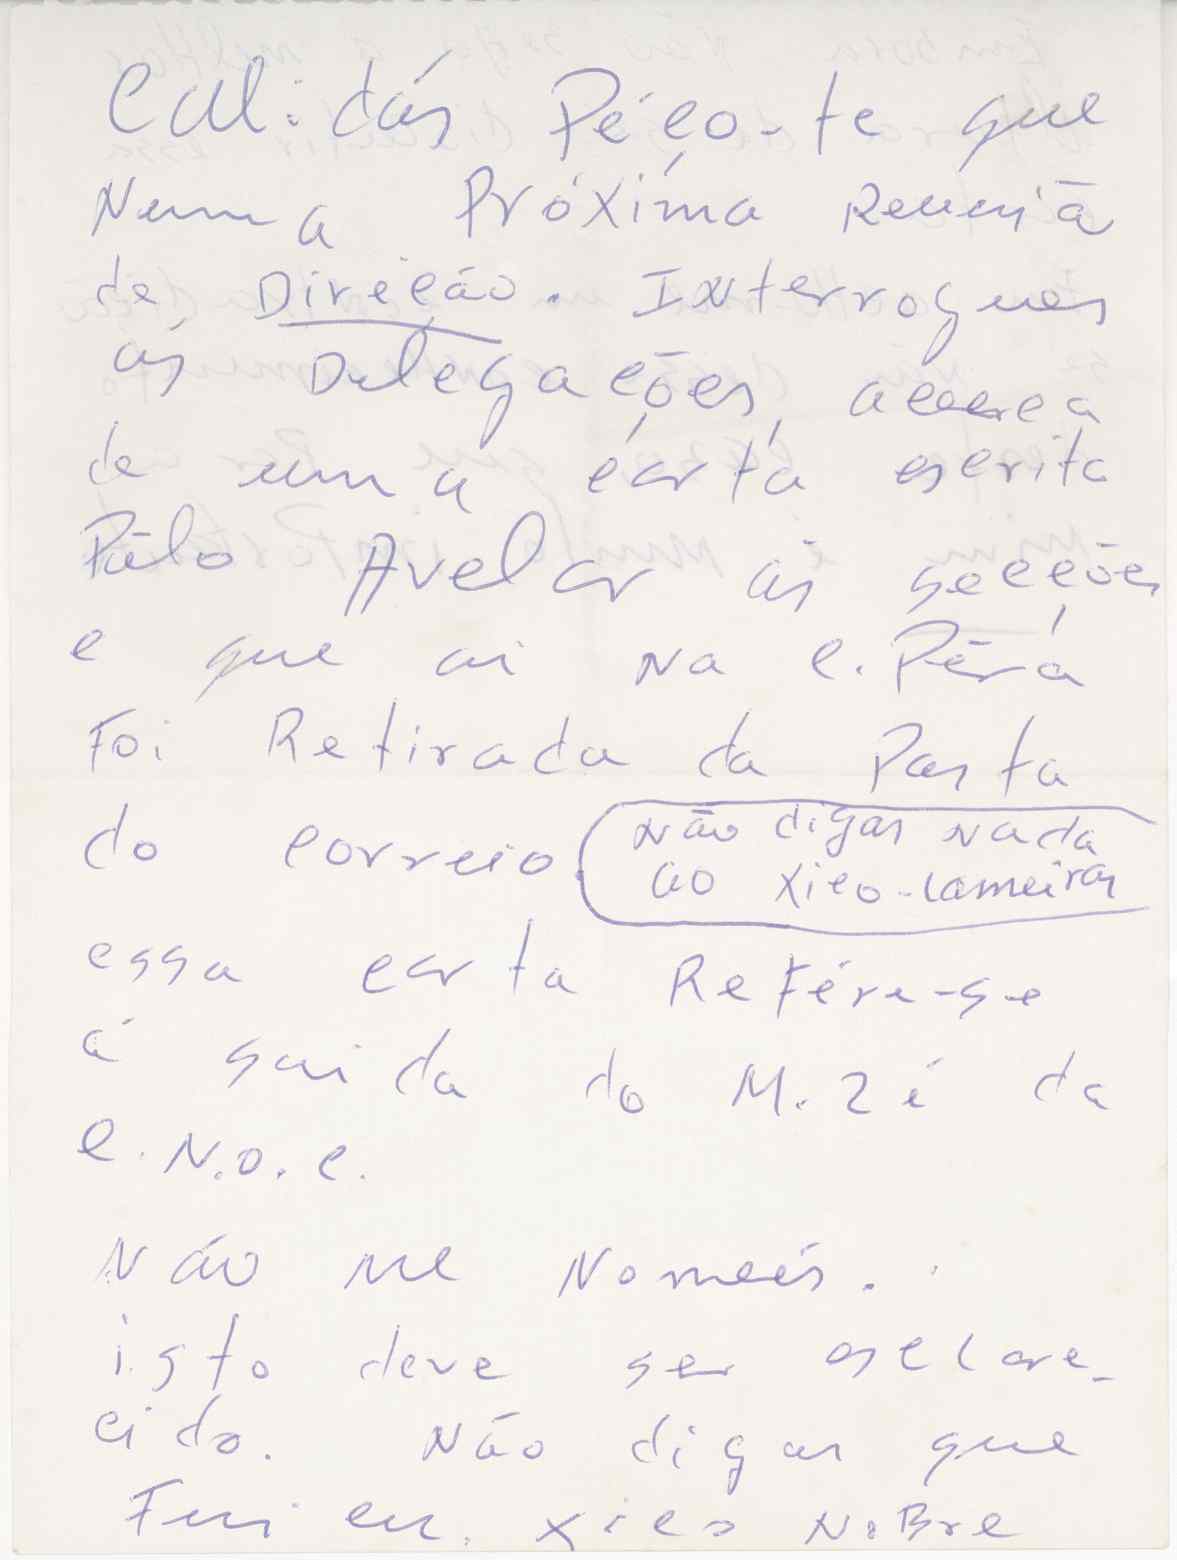 Cal: dás Péço-te que
Numa Próxima Reuniã
de Direção. Interrogues
ás Delegações, acerca
de uma cárta escrita
Pálo Avelar ás secções
e que ai na C. Pérá
Foi Retirada da Pasta
do correio.
Não digas Nada
ao Xico-Lameiras
essa carta Refére-se
á saida do M. Zé da
C.N.O.C.
Não me Nomeés.
isto deve ser esclare-
cido. Não digas que
Fui eu. Xico Nobre